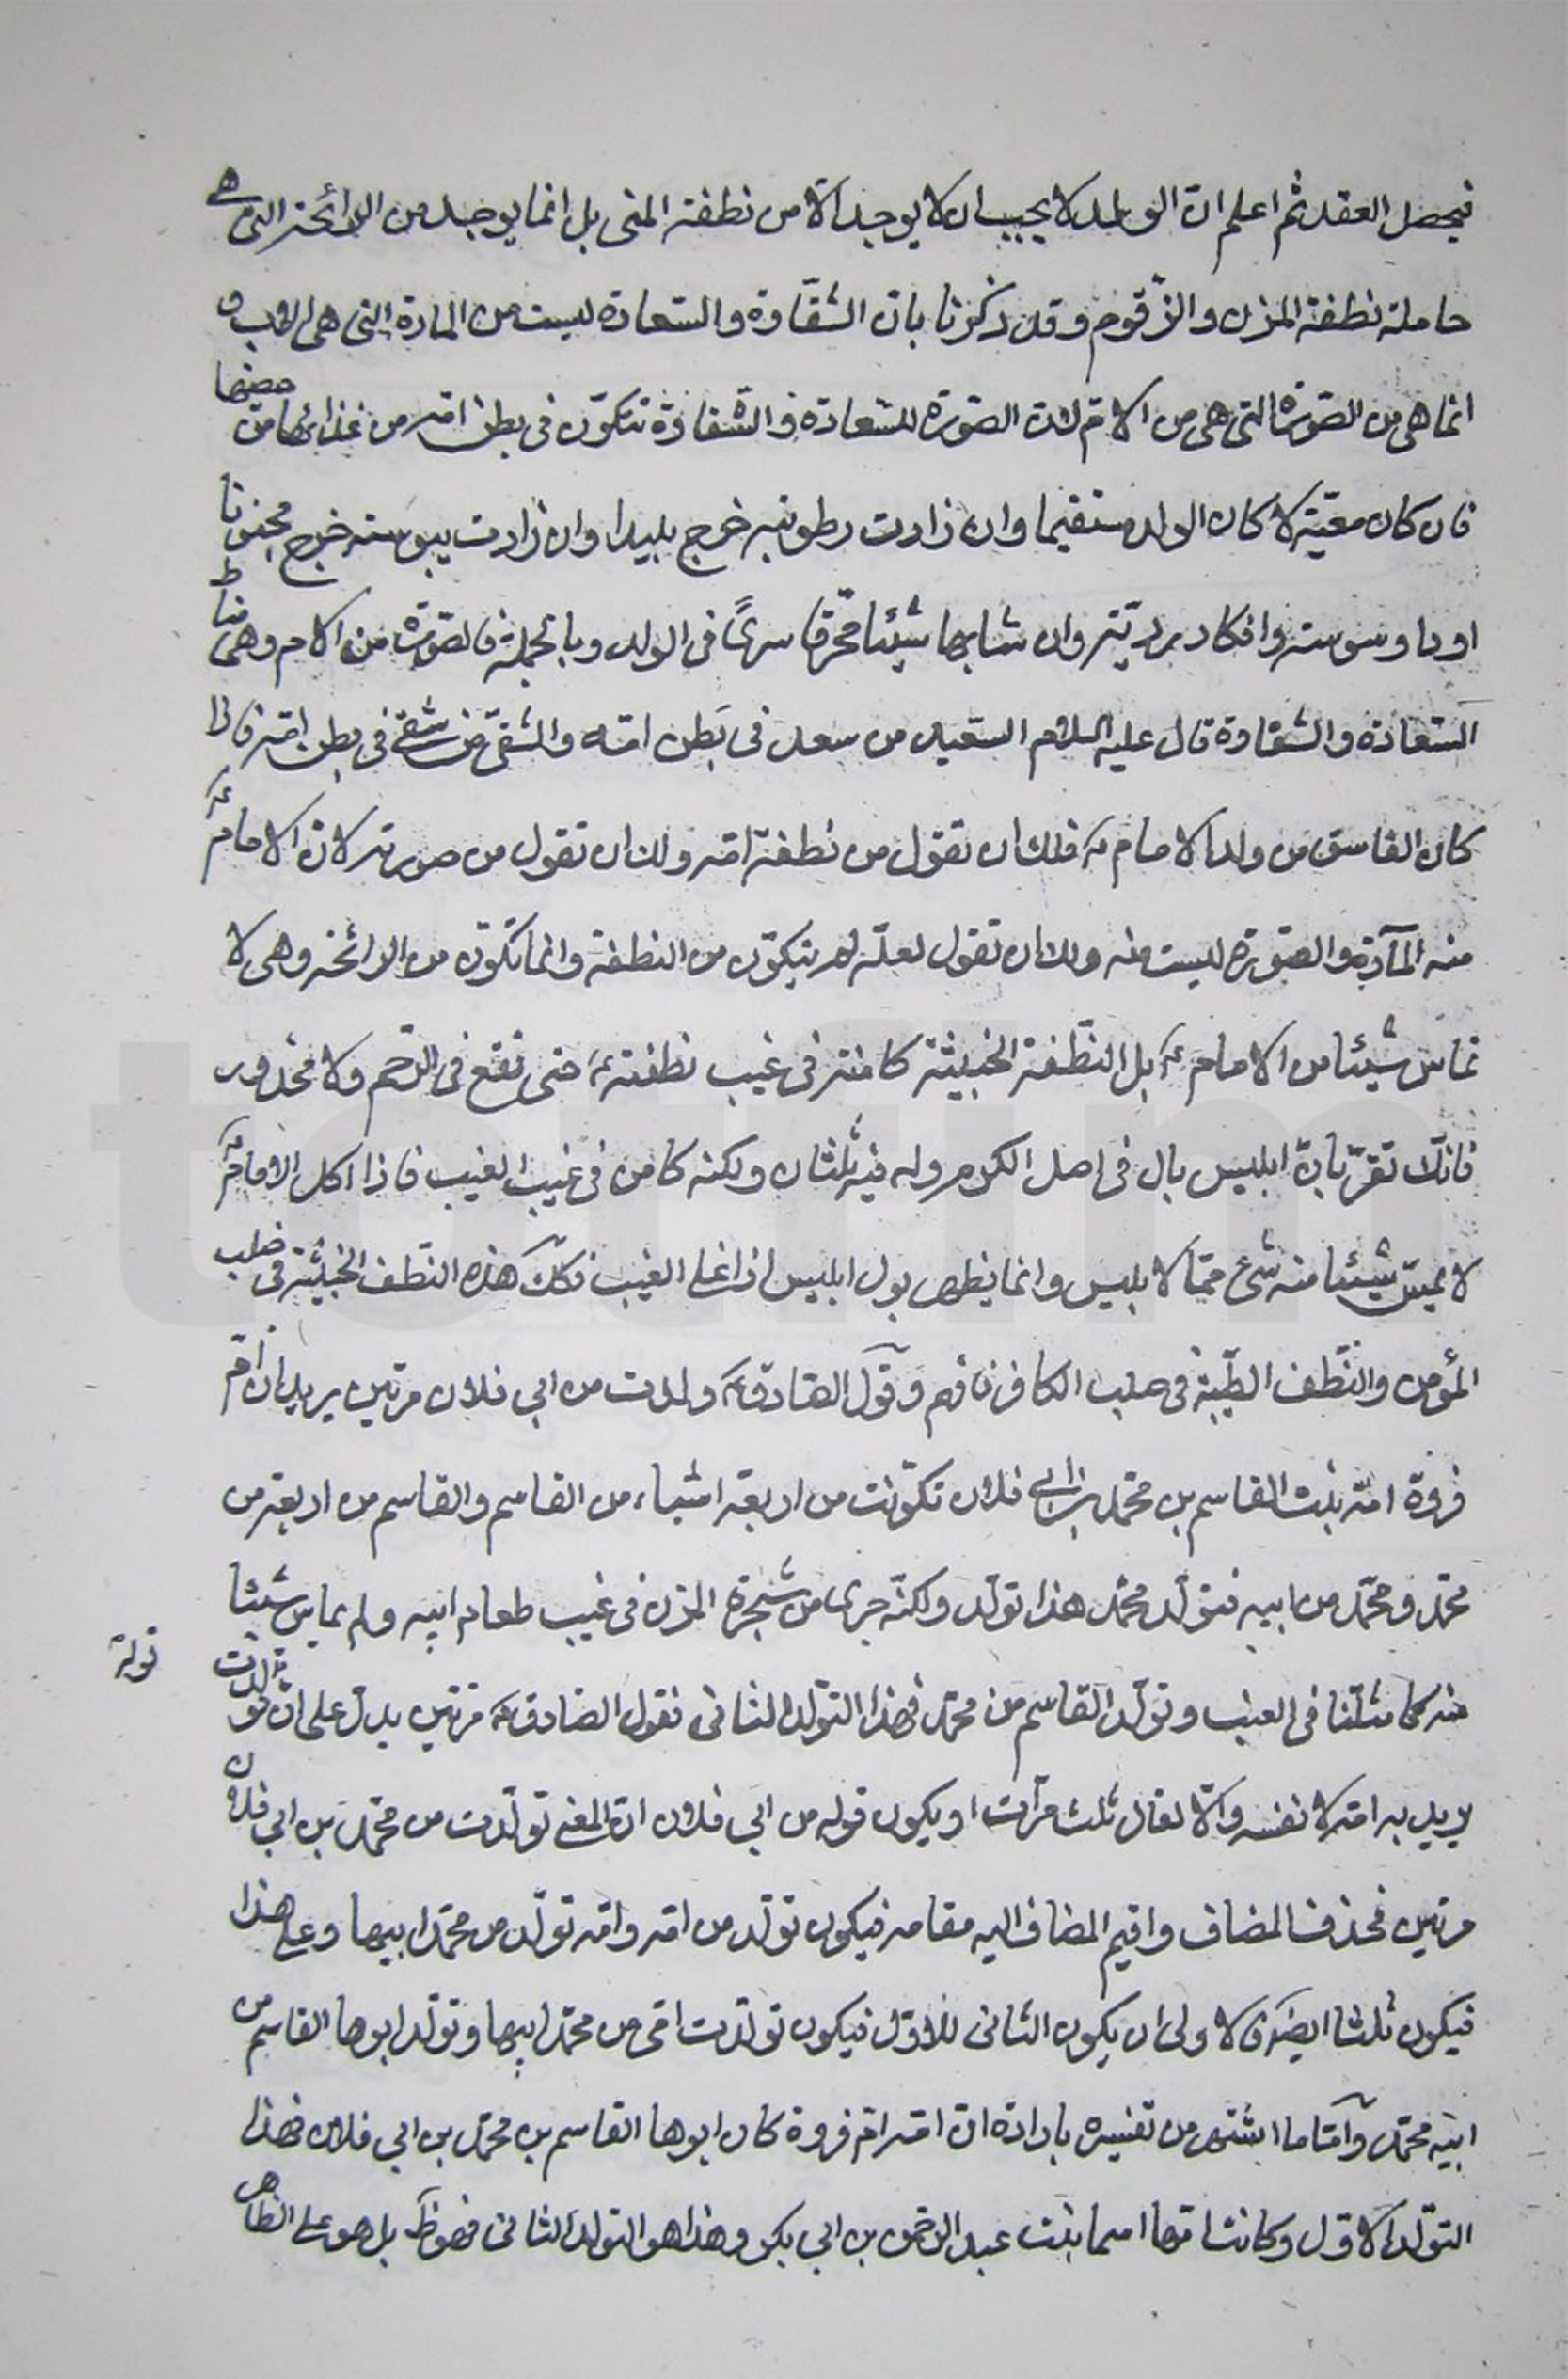 فيحصل العقد ثم اعلم ان الولد لا يجب ان لا يوجد الا من نطفة المنى بل انما يوجد من الرائحة التى هى
حاملة نطفة المزن والزّقوم وقد ذكرنا بان الشقاوة والسّعادة ليست من المادة التى هى الاب و
انما هى من الصّورة التى هى من الامّ لان الصّورة للسّعادة والشّقاوة تتكوّن فى بطن امّه من غذائها من حيضها
فان كان معتدلا كان الولد مستقيما وان زادت رطوبته خرج بليدا وان زادت يبوسته خرج مجنونا
او ذا وسوسة وافكار رديّة وان شابها شيئا محرّقا سرىً فى الولد وبالجملة فالصّورة من الام وهى مناط
السّعادة والشقاوة قال عليه السلام السّعيد من سعد فى بَطن امّه والشقىّ من شقى فى بطن امّه فاذا
كان الفاسق من ولد الامام ع فلك ان تقول من نطفة امّه ولك ان تقول من صورته لان الامام ع
منه المآدّة والصّورة ليست منه ولك ان تقول لعلّه لم يتكوّن من النطفة وانما تكوّن من الرائحة وهى لا
تماسّ شيئا من الامام ع بل النّطفة الخبيثة كامنة فى غيب نطفته ع حتى تقع فى الرّحم ولا محذور
فانك تقرّ بانّ ابليس بال فى اصل الكرم وله فيه ثلثان ولكنه كامن فى غيب الغيب فاذا اكل الامام ع
لا يمسّ شيئا منه شئ ممّا لابليس وانما يظهر بول ابليس اذا غلى العنب فكك هذه النّطف الخبيثة فى صلب
المؤمن والنّطف الطّيبة فى صلب الكافر فافهم وقول الصّادق ع ولدت من ابي فلان مرتين يريد ان امّ
فروة امّه بنت القاسم بن محمّد بن ابي فلان تكوّنت من اربعة اشياء من القاسم والقاسم من اربعة من
محمّد ومحمّد من ابيه فتولّد محمّد هذا تولّد ولكنّه جرى من شجرة المزن فى غيب طعام ابيه ولم يماسّ شيئا
منه كما مثّلنا فى العنب وتولّد القاسم من محمّد فهذا التولّد الثانى فقول الصّادق ع مرّتين يدلّ على انّ قوله ولدت
يريد به امّه لا نفسه والّا لقال ثلث مرّات او يكون قوله من ابي فلان انّ المعنى تولّدت من محمّد بن ابي فلان
مرتين فحذف المضاف واقيم المضاف اليه مقامه فيكون تولّد من امّه وامّه تولّد من محمّد ابيها وعلى هذا
فيكون ثلثا ايضا والاولى ان يكون الثانى للاوّل فيكون تولّدت امّى من محمّد ابيها وتولّد ابوها القاسم من
ابيه محمّد وامّا ما اشتهر من تفسيره بارادة انّ امّه امّ فروة كان ابوها القاسم بن محمّد بن ابي فلان فهذا
التولّد الاوّل وكانت امّها اسما بنت عبد الرّحمن بن ابي بكر وهذا هو التولّد الثانى بل هو على الظاهر